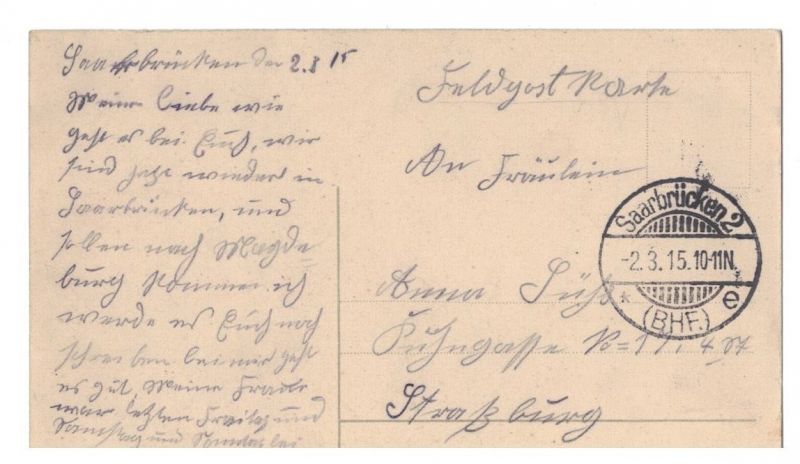 Saarbrücken den 2.3 15
Meine liebe wie
geht es bei Euch, wir
sind jetzt wieder in
Saarbrücken, und
sollen nach Magde
burg kommen ich
werde es Euch noch
schreiben bei mir geht
es gut, Meine
war letzten Freitag und
Samstag und Sonntag bei
Feldpost Karte
An Fräulein
Anna Süß
Kuhngasse 17, 4
Straßburg
Saarbrücken 2
-2.3.15.10-11N.
* e
(BHF.)